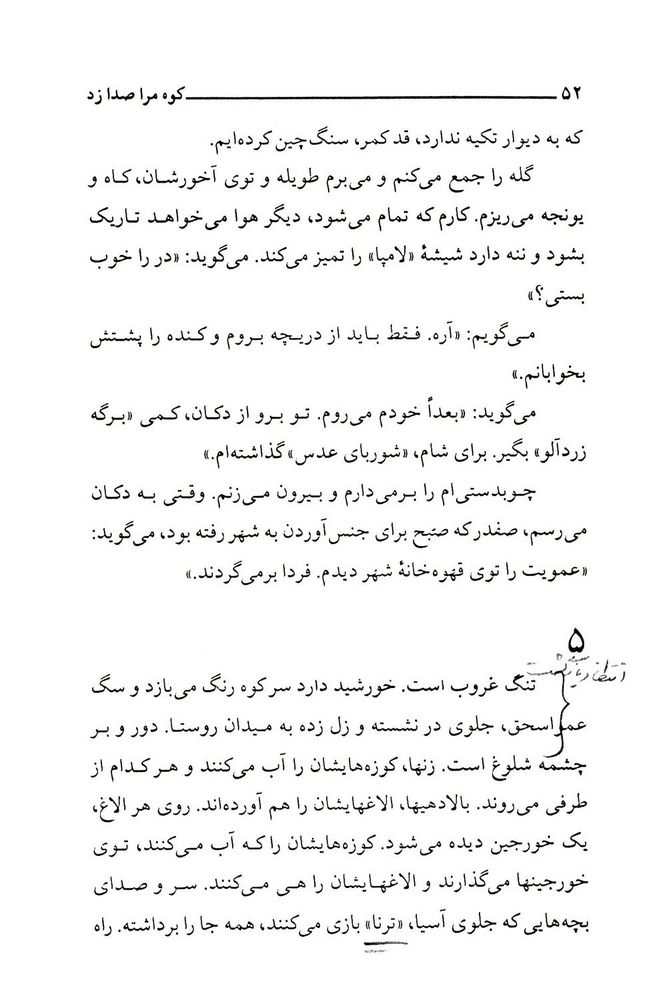 ۵۲ کوه مرا صدا زد
که به دیوار تکیه ندارد، قد کمر، سنگ‌چین کرده‌ایم.
گله را جمع می‌کنم و می‌برم طویله و توی آخورشان، کاه و
یونجه می‌ریزم. کارم که تمام می‌شود، دیگر هوا می‌خواهد تاریک
بشود و ننه دارد شیشهٔ «لامپا» را تمیز می‌کند. می‌گوید: «در را خوب
بستی؟»
می‌گویم: «آره. فقط باید از دریچه بروم و کنده را پشتش
بخوابانم.»
می‌گوید: «بعداً خودم می‌روم. تو برو از دکان، کمی «برگه
زردآلو» بگیر. برای شام، «شوربای عدس» گذاشته‌ام.»
چوبدستی‌ام را برمی‌دارم و بیرون می‌زنم. وقتی به دکان
می‌رسم، صفدر که صبح برای جنس‌آوردن به شهر رفته بود، می‌گوید:
«عمویت را توی قهوه‌خانهٔ شهر دیدم. فردا برمی‌گردند.»
۵
تنگ غروب است. خورشید دارد سر کوه رنگ می‌بازد و سگ
عمو اسحق، جلوی در نشسته و زل زده به میدان روستا. دور و بر
چشمه شلوغ است. زنها، کوزه‌هایشان را آب می‌کنند و هر کدام از
طرفی می‌روند. بالادهیها، الاغهایشان را هم آورده‌اند. روی هر الاغ،
یک خورجین دیده می‌شود. کوزه‌هایشان را که آب می‌کنند، توی
خورجینها می‌گذارند و الاغهایشان را هی می‌کنند. سر و صدای
بچه‌هایی که جلوی آسیا، «ترنا» بازی می‌کنند، همه جا را برداشته. راه